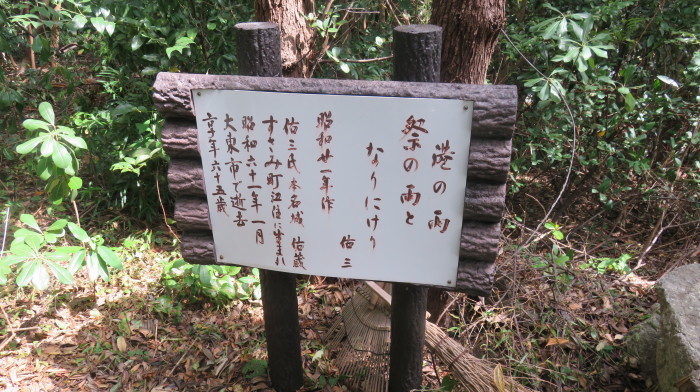 港の雨
祭の雨と
なりにけり
佑三
昭和廿一年作
佑三氏本名城 佑蔵
すさみ町江住に生まれ
昭和六十一年一月
大東市で逝去
享年六十五歳